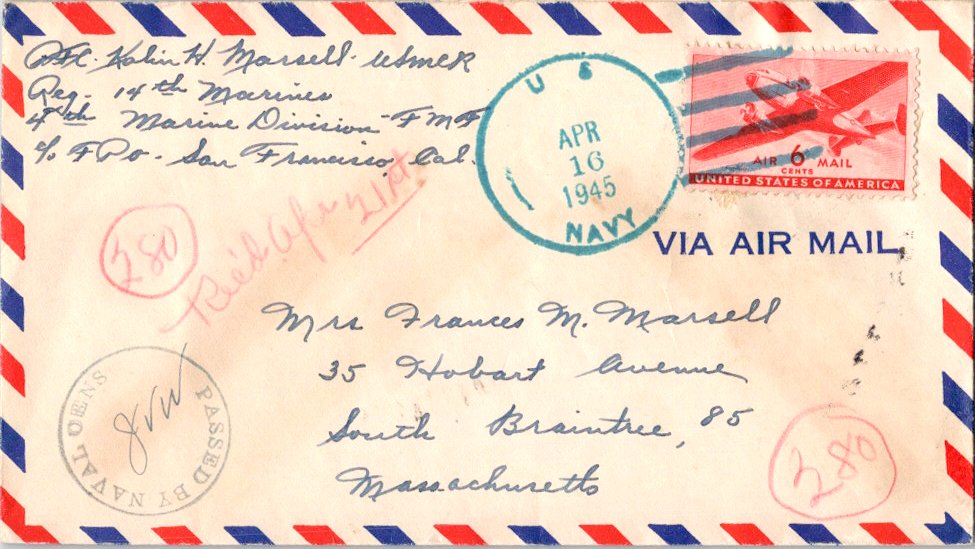 Pfc. Kolin H. Marsell - USMCR
Reg. 14th Marines
4th Marine Division - FMF
c/o FPO - San Francisco, Cal.
U S
APR
16
1945
NAVY
AIR 6 MAIL
CENTS
UNITED STATES OF AMERICA
VIA AIR MAIL
380
Rec'd. Apr 21st
Mrs Frances M. Marsell
35 Hobart Avenue
South Braintree, 85
Massachusetts
PASSED BY NAVAL CENS
380